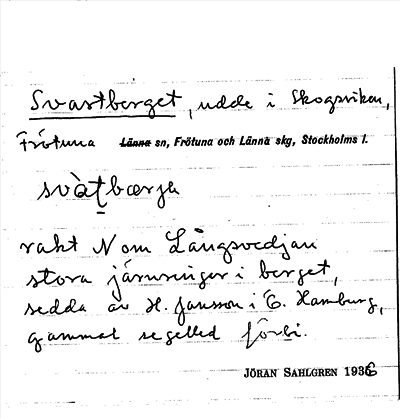 Svartberget, udde i Skogsviken,
Frötuna Länna sn, Frötuna och Länna skg, Stockholms l.
svàṭbærjə
rakt N om Långsvedjan
stora järnringar i berget,
sedda av H. Jansson i E. Hamburg,
gammal segelled förbi.
JÖRAN SAHLGREN 1936